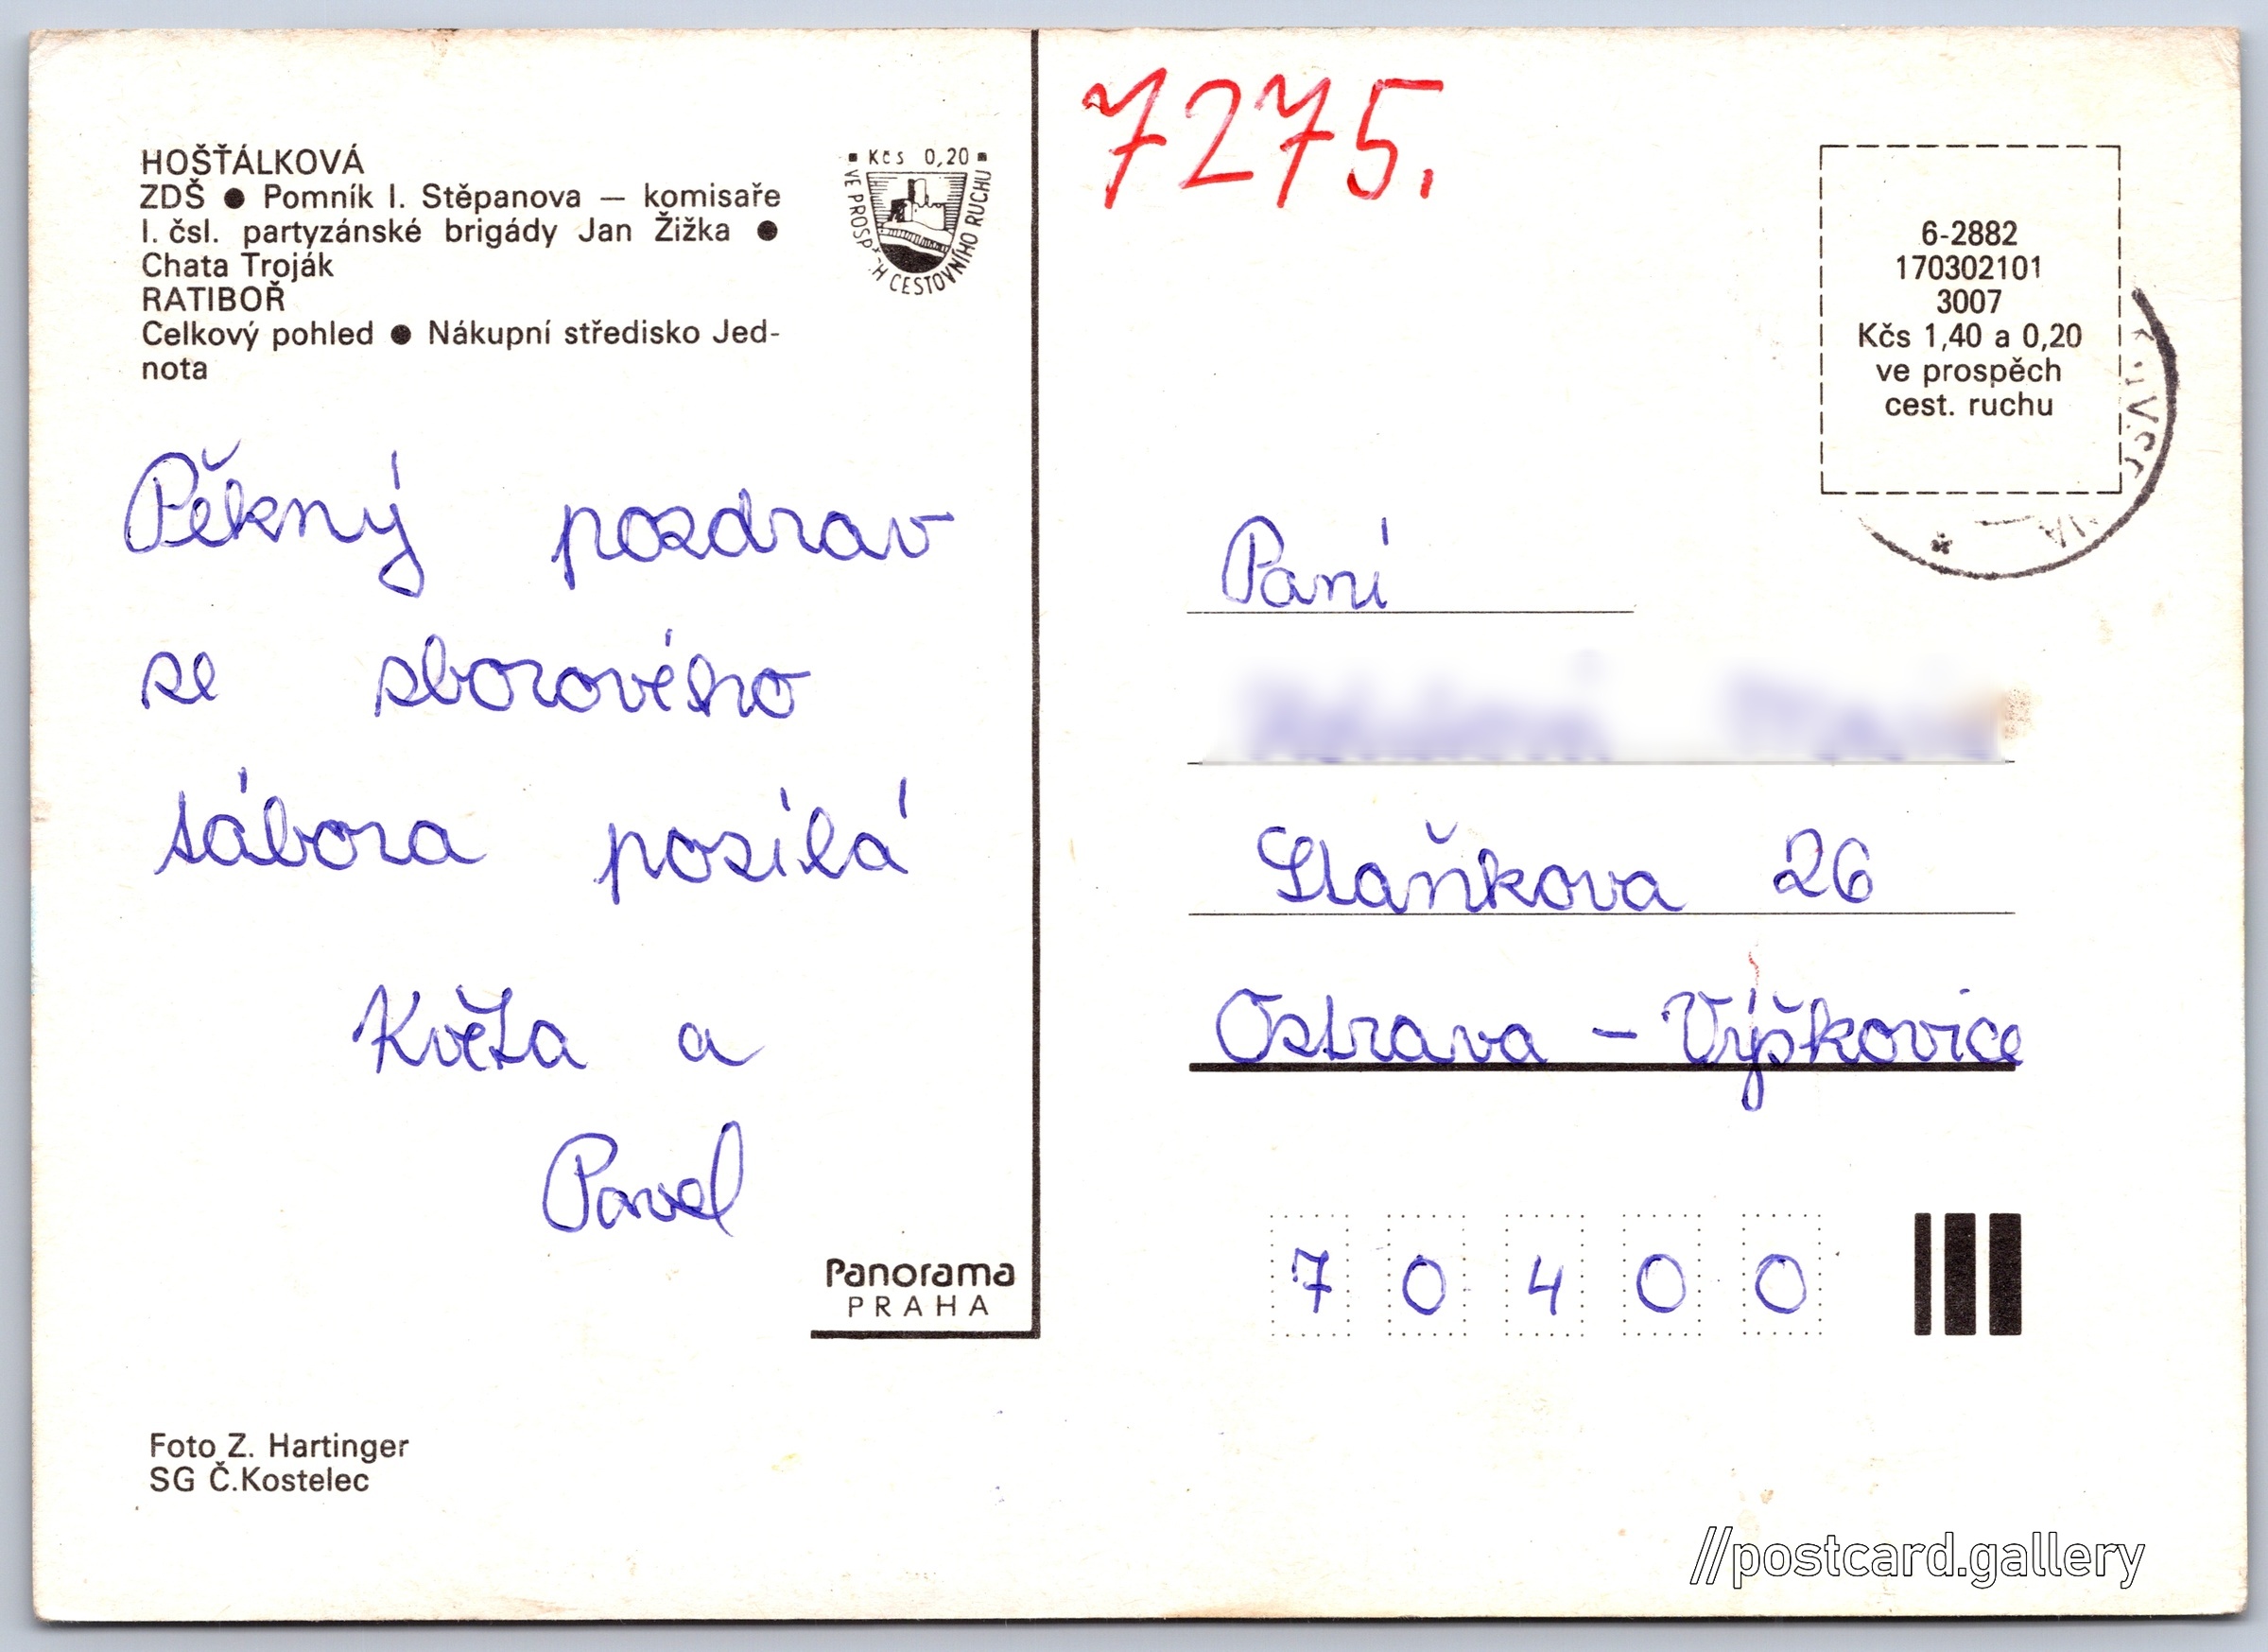 HOŠŤÁLKOVÁ
ZDŠ ● Pomník I. Stěpanova — komisaře
I. čsl. partyzánské brigády Jan Žižka ●
Chata Troják
RATIBOŘ
Celkový pohled ● Nákupní středisko Jed-
nota
Kčs 0,20
VE PROSP CESTOVNÍHO RUCHU
Pěkný pozdrav
ze sborového
tábora posílá
Květa a
Pavel
Panorama
PRAHA
Foto Z. Hartinger
SG Č.Kostelec
7275.
6-2882
170302101
3007
Kčs 1,40 a 0,20
ve prospěch
cest. ruchu
Paní
Staňkova 26
Ostrava – Výškovice
7 0 4 0 0
//postcard.gallery